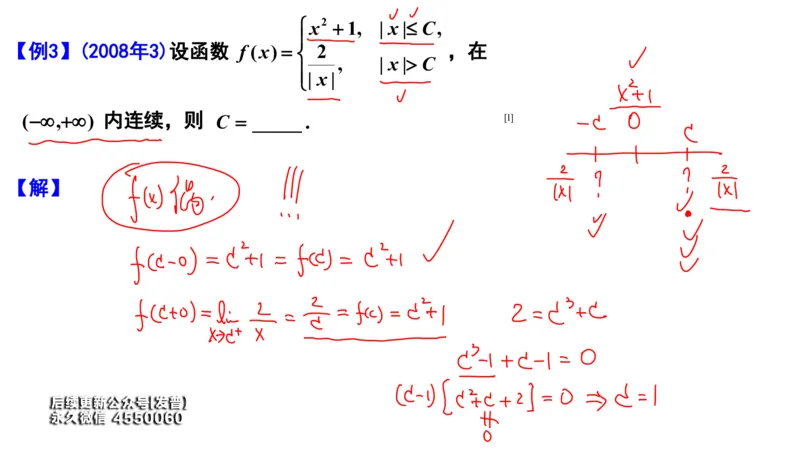 【例3】(2008年3) 设函数 f(x) = { x² + 1, | x |≤ C, 2/| x |, | x |> C ，在
(−∞,+∞) 内连续，则 C = _____ .
[1]
x²+1
-C 0 C
2/|x| ? ? 2/|x|
【解】 f(x) 偶. !!!
f(C-0) = C²+1 = f(C) = C²+1 ✓
f(C+0) = lim x→C⁺ 2/x = 2/C = f(C) = C²+1 2 = C³+C
C³-1+C-1=0
(C-1)[C²+C+2]=0 ⇒ C=1
0
后续更新公众号[发普]
永久微信 4550060